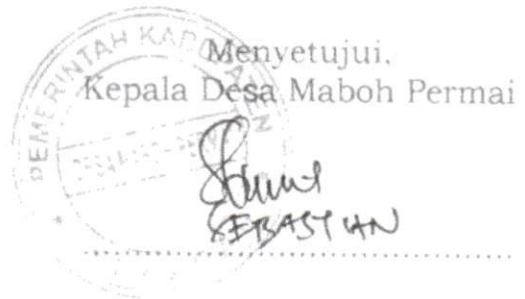 Menyetujui,
Kepala Desa Maboh Permai
PEMERINTAH KABUPATEN
SEBASTIAN